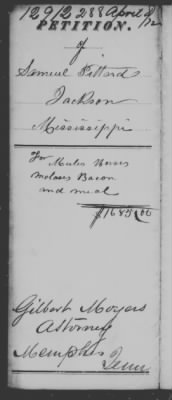 12912 288 April 8/72
PETITION.
of
Samuel Pittard
Jackson
Mississippi
For Mules Horses
molases Bacon
and meal
$1685.00
Gilbert Moyers
Attorney
Memphis
Tenn.